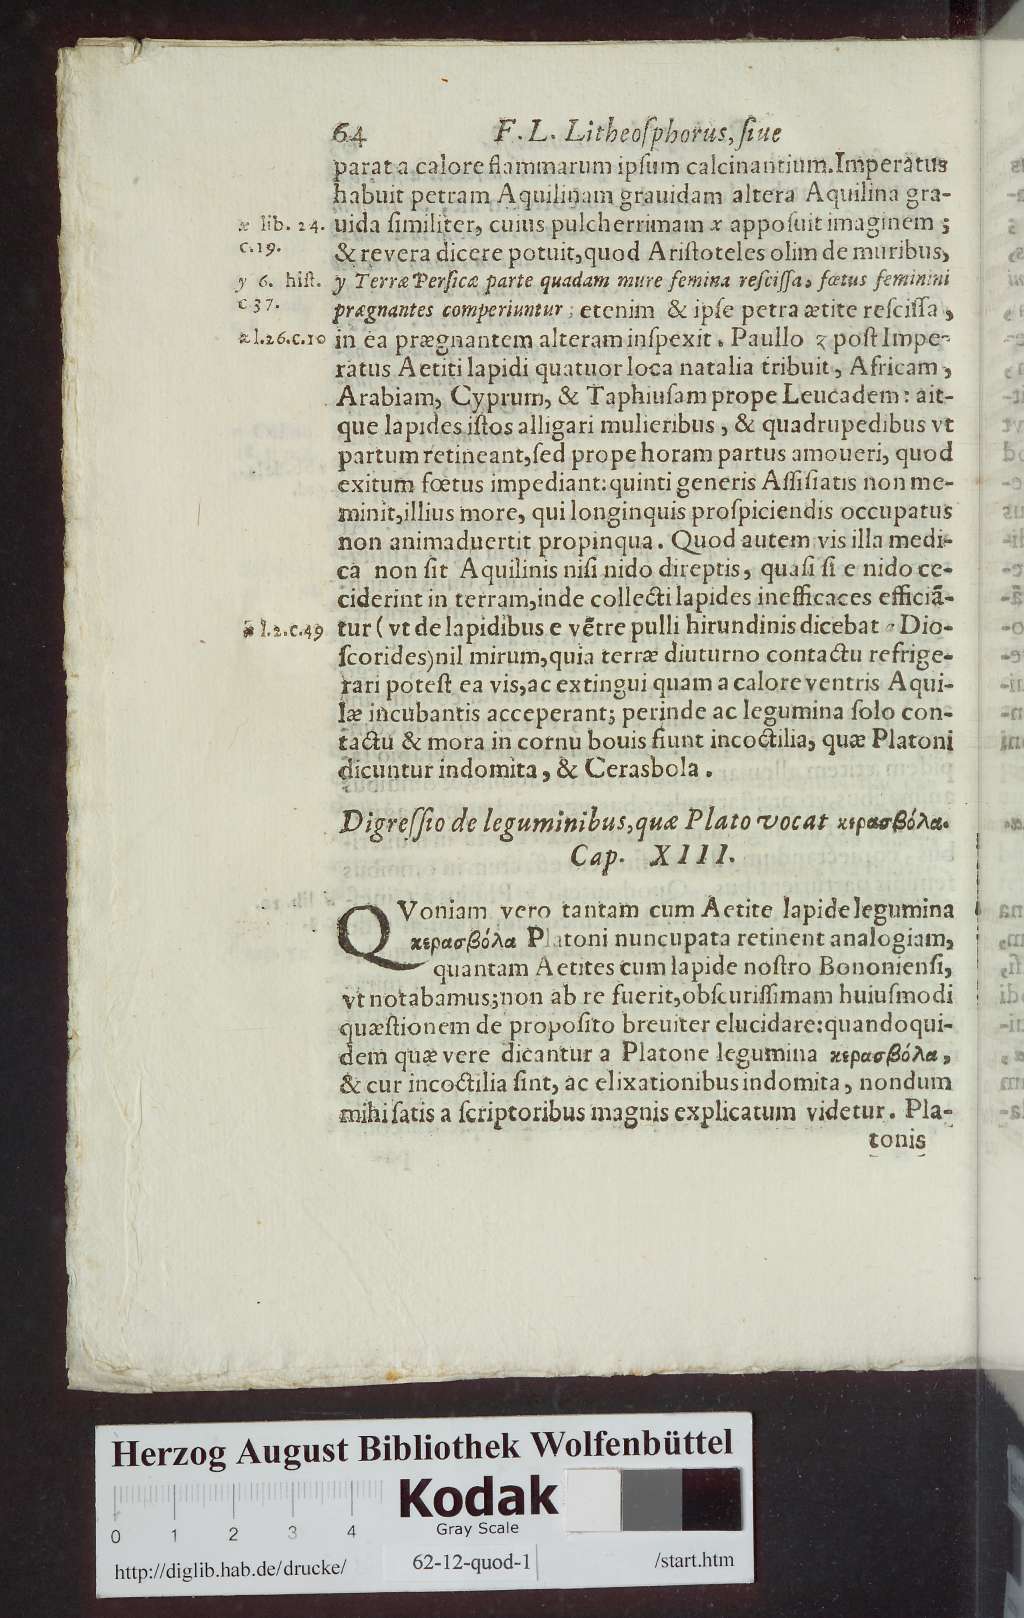 64 F. L. Litheoſphorus, ſiue
parat a calore flammarum ipſum calcinantium. Imperatus
habuit petram Aquilinam grauidam altera Aquilina gra-
x lib. 24. c. 19.
uida ſimiliter, cuius pulcherrimam x appoſuit imaginem ;
& revera dicere potuit, quod Ariſtoteles olim de muribus,
y 6. hiſt. c 37.
y Terræ Perſicæ parte quadam mure femina reſciſſa, fœtus feminini
prægnantes comperiuntur ; etenim & ipſe petra ætite reſciſſa,
z l. 26. c. 10
in ea prægnantem alteram inſpexit. Paullo z poſt Impe-
ratus Aetiti lapidi quatuor loca natalia tribuit, Africam,
Arabiam, Cyprum, & Taphiuſam prope Leucadem: ait-
que lapides iſtos alligari mulieribus, & quadrupedibus vt
partum retineant, ſed prope horam partus amoueri, quod
exitum fœtus impediant: quinti generis Aſſiſiatis non me-
minit, illius more, qui longinquis proſpiciendis occupatus
non animaduertit propinqua. Quod autem vis illa medi-
ca non ſit Aquilinis niſi nido direptis, quaſi ſi e nido ce-
ciderint in terram, inde collecti lapides inefficaces efficiã-
l. 2. c. 49
tur ( vt de lapidibus e vẽtre pulli hirundinis dicebat Dio-
ſcorides) nil mirum, quia terræ diuturno contactu refrige-
rari poteſt ea vis, ac extingui quam a calore ventris Aqui-
læ incubantis acceperant; perinde ac legumina ſolo con-
tactu & mora in cornu bouis fiunt incoctilia, quæ Platoni
dicuntur indomita, & Cerasbola.
Digreſſio de leguminibus, quæ Plato vocat κερασβόλα.
Cap. XIII.
QVoniam vero tantam cum Aetite lapide legumina
κερασβόλα Platoni nuncupata retinent analogiam,
quantam Aetites cum lapide noſtro Bononienſi,
vt notabamus; non ab re fuerit, obſcuriſſimam huiuſmodi
quæſtionem de propoſito breuiter elucidare: quandoqui-
dem quæ vere dicantur a Platone legumina κερασβόλα,
& cur incoctilia ſint, ac elixationibus indomita, nondum
mihi ſatis a ſcriptoribus magnis explicatum videtur. Pla-
tonis
Herzog August Bibliothek Wolfenbüttel
Kodak
Gray Scale
0 1 2 3 4
http://diglib.hab.de/drucke/ 62-12-quod-1 /start.htm